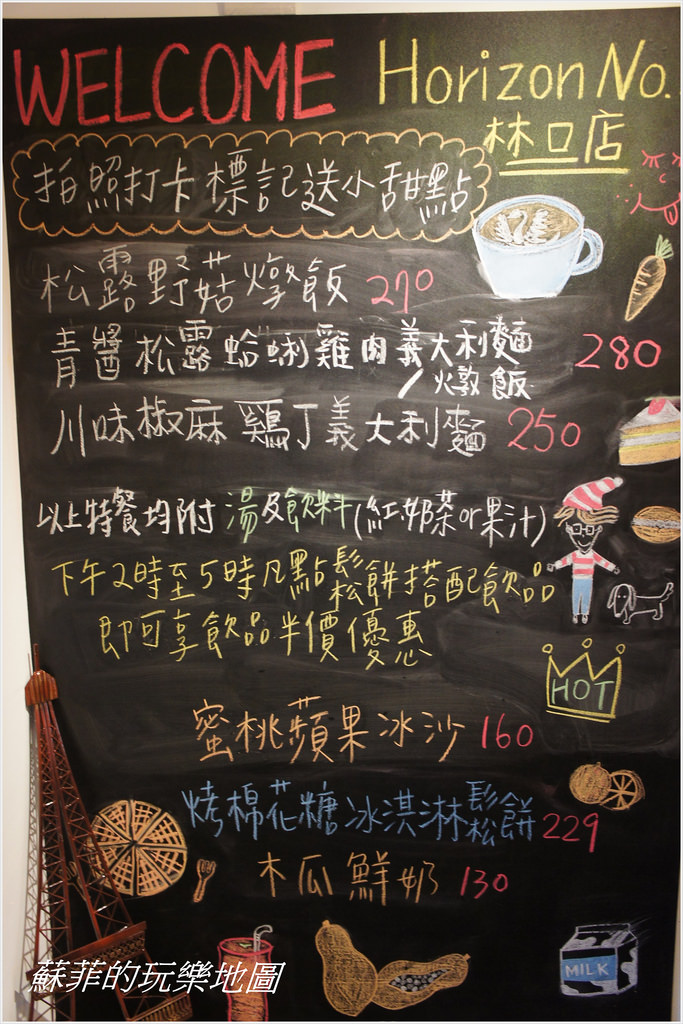 WELCOME Horizon No.
林口店
拍照打卡標記送小甜點
松露野菇燉飯 270
青醬松露蛤蜊雞肉義大利麵 280
/燉飯
川味椒麻鷄丁義大利麵 250
以上特餐均附湯及飲料(紅.奶茶or果汁)
下午2時至5時凡點鬆餅搭配飲品
即可享飲品半價優惠
HOT
蜜桃蘋果冰沙 160
烤棉花糖冰淇淋鬆餅 229
木瓜鮮奶 130
MILK
蘇菲的玩樂地圖